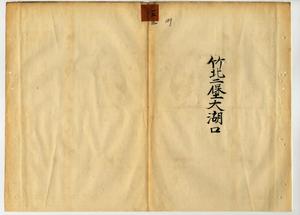 竹北二堡大湖口